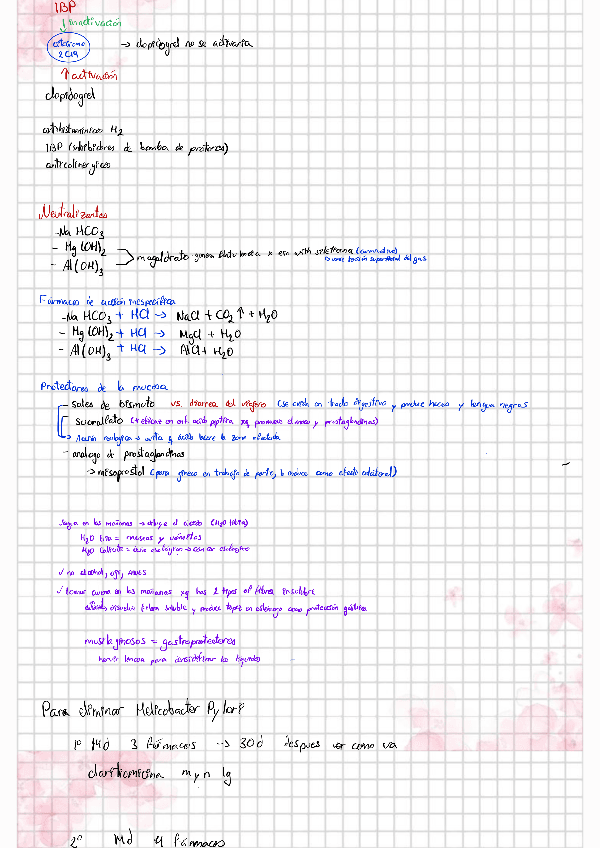 IBP
↓ inactivación
citocromo 2C19 → clopidogrel no se activaría
↑ activación
clopidogrel
antihistamínicos H2
IBP (inhibidores de bomba de protones)
anticolinérgicos
Neutralizantes
- Na HCO3
- Mg(OH)2
- Al(OH)3
magaldrato genera flatulencia x eso with simeticona (carminativo)
tensión superficial del gas
Fármacos de acción inespecífica
- Na HCO3 + HCl → NaCl + CO2 ↑ + H2O
- Mg(OH)2 + HCl → MgCl + H2O
- Al(OH)3 + HCl → AlCl + H2O
Protectores de la mucosa
- sales de bismuto vs. diarrea del viajero (se en tracto digestivo y produce heces y lengua negras
- sucralfato (+ eficaz en ulc. acido péptica xq promueve el moco y prostaglandinas)
→ Acción → evita q ácido la zona afectada
- análogo de prostaglandinas
→ misoprostol (para gineco en trabajo de parto, como efecto colateral)
en las mañanas → el ácido (H2O tibia)
H2O tibia = nauseas y vómitos
H2O caliente =
✓ no alcohol, AINES
✓ tomar avena en las mañanas xq has 2 tipos of fibra insoluble
soluble y produce en estómago como protección gástrica
musilaginosos = gastroprotectores
hervir linaza para los líquidos
Para eliminar Helicobacter Pylori
1º 14d 3 fármacos → 30d después ver como va
claritromicina m y n 1g
2º 14d 4 fármacos